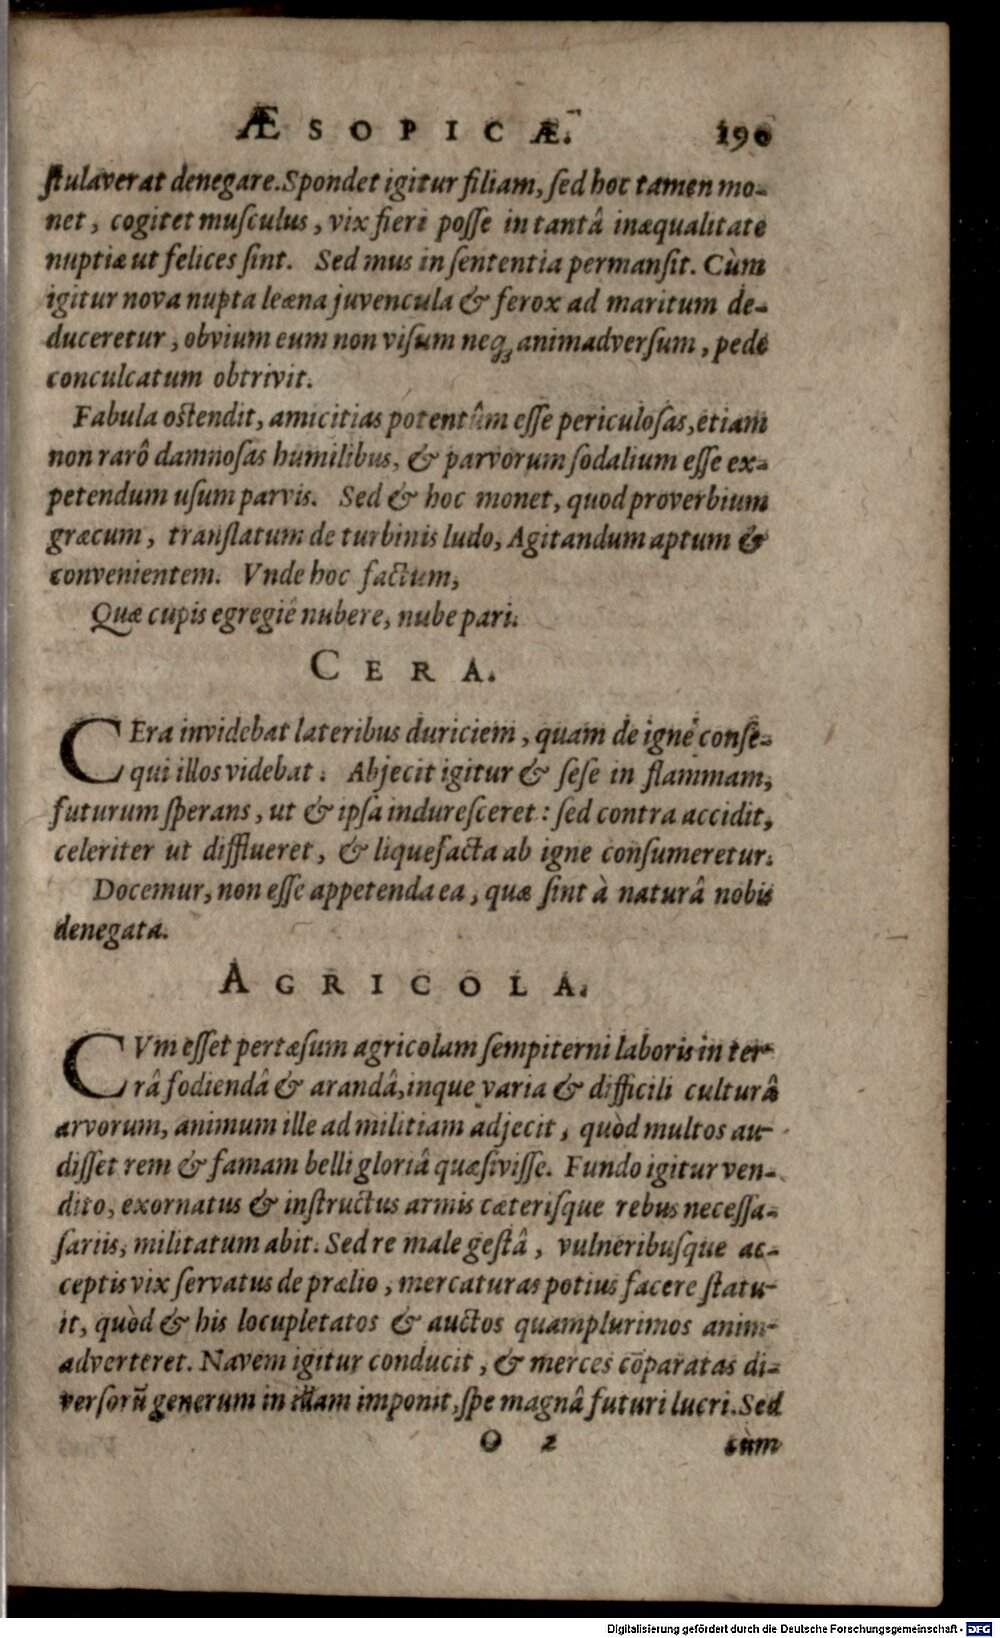 ÆSOPICÆ. 190
stulaverat denegare. Spondet igitur filiam, sed hoc tamen mo-
net, cogitet musculus, vix fieri posse in tantâ inæqualitate
nuptiæ ut felices sint. Sed mus in sententia permansit. Cùm
igitur nova nupta leæna juvencula & ferox ad maritum de-
duceretur, obvium eum non visum neq; animadversum, pede
conculcatum obtrivit.
Fabula ostendit, amicitias potentûm esse periculosas, etiam
non rarô damnosas humilibus, & parvorum sodalium esse ex-
petendum usum parvis. Sed & hoc monet, quod proverbium
græcum, translatum de turbinis ludo, Agitandum aptum &
convenientem. Vnde hoc factum,
Quæ cupis egregiê nubere, nube pari.
CERA.
CEra invidebat lateribus duriciem, quam de igne conse-
qui illos videbat. Abjecit igitur & sese in flammam,
futurum sperans, ut & ipsa induresceret: sed contra accidit,
celeriter ut difflueret, & liquefacta ab igne consumeretur.
Docemur, non esse appetenda ea, quæ sint à naturâ nobis
denegata.
AGRICOLA.
CVm esset pertæsum agricolam sempiterni laboris in ter-
râ fodiendâ & arandâ, inque varia & difficili culturâ
arvorum, animum ille ad militiam adjecit, quòd multos au-
disset rem & famam belli gloriâ quæsivisse. Fundo igitur ven-
dito, exornatus & instructus armis cæterisque rebus necessa-
sariis, militatum abit. Sed re male gestâ, vulneribusque ac-
ceptis vix servatus de prælio, mercaturas potius facere statu-
it, quòd & his locupletatos & auctos quamplurimos anim-
adverteret. Navem igitur conducit, & merces cōparatas di-
versorū generum in illam imponit, spe magnâ futuri lucri. Sed
O 2 cùm
Digitalisierung gefördert durch die Deutsche Forschungsgemeinschaft - DFG